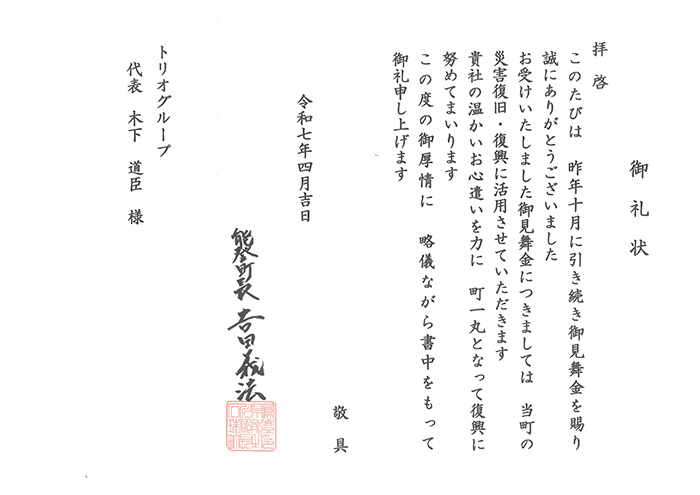 御礼状
拝啓
このたびは　昨年十月に引き続き御見舞金を賜り
誠にありがとうございました
お受けいたしました御見舞金につきましては　当町の
災害復旧・復興に活用させていただきます
貴社の温かいお心遣いを力に　町一丸となって復興に
努めてまいります
この度の御厚情に　略儀ながら書中をもって
御礼申し上げます
敬具
令和七年四月吉日
能登町長　吉田義法
トリオグループ
代表　木下　道臣　様